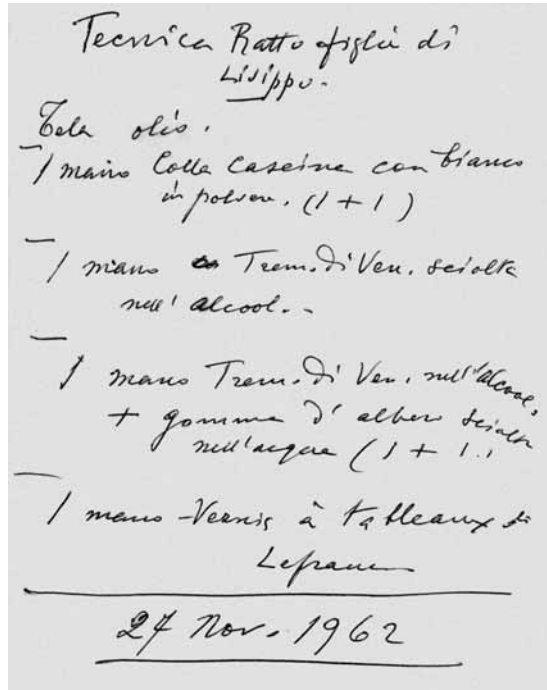 Tecnica Ratto figlie di
Lisippo.
Tela olio.
1 mano Colla Caseina con bianco
in polvere. (1 + 1)
1 mano Trem. di Ven. sciolta
nell' alcool. -
1 mano Trem. di Ven. nell' alcool.
+ gomma d' albero sciolta
nell'acqua (1 + 1.)
1 mano Vernis à tableaux di
Lefranc
27 Nov. 1962